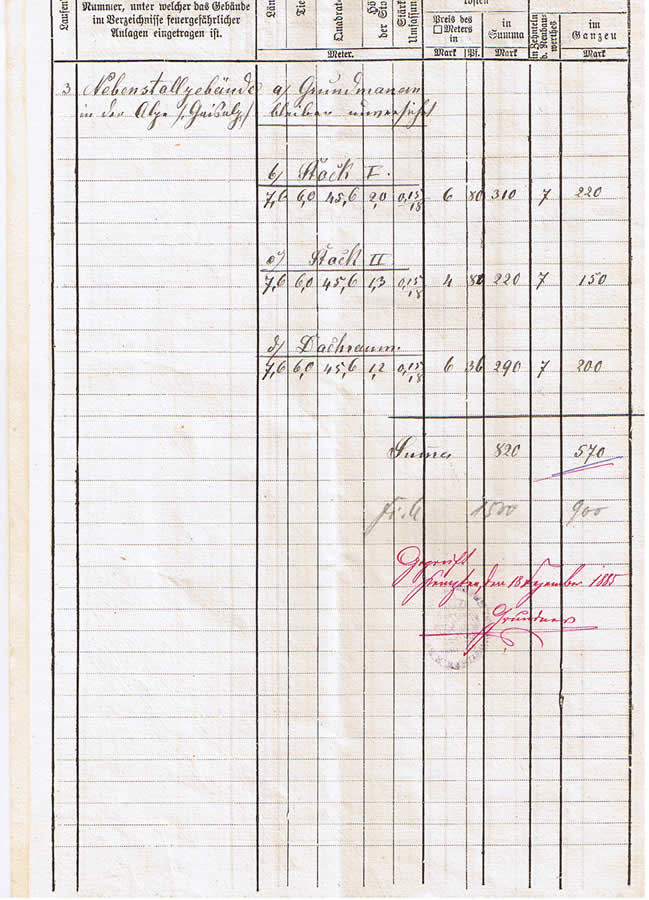 Laufen
Nummer, unter welcher das Gebäude
im Verzeichnisse feuergefährlicher
Anlagen eingetragen ist.
Län
Tie
Quadrat-
Hö
der Sto
Stärk
Umfassun
Meter.
kosten
Preis des
□ Meters
in
Mark Pf.
in
Summa
Mark
in Zehnteln
d. Neubau-
werthes
im
Ganzen
Mark
3 Nebenstallgebäude a) Grundmauern
in der Alpe (Gaisalp) bleiben unversichert
b) Stock I.
7,6 6,0 45,6 2,0 0,15/18 6 80 310 7 220
c) Stock II
7,6 6,0 45,6 1,3 0,15/18 4 82 220 7 150
d) Dachraum.
7,6 6,0 45,6 1,2 0,15/18 6 36 290 7 200
Summa 820 570
1500 900
Geprüft
Kempten, den 13 Dezember 1885
Grundner